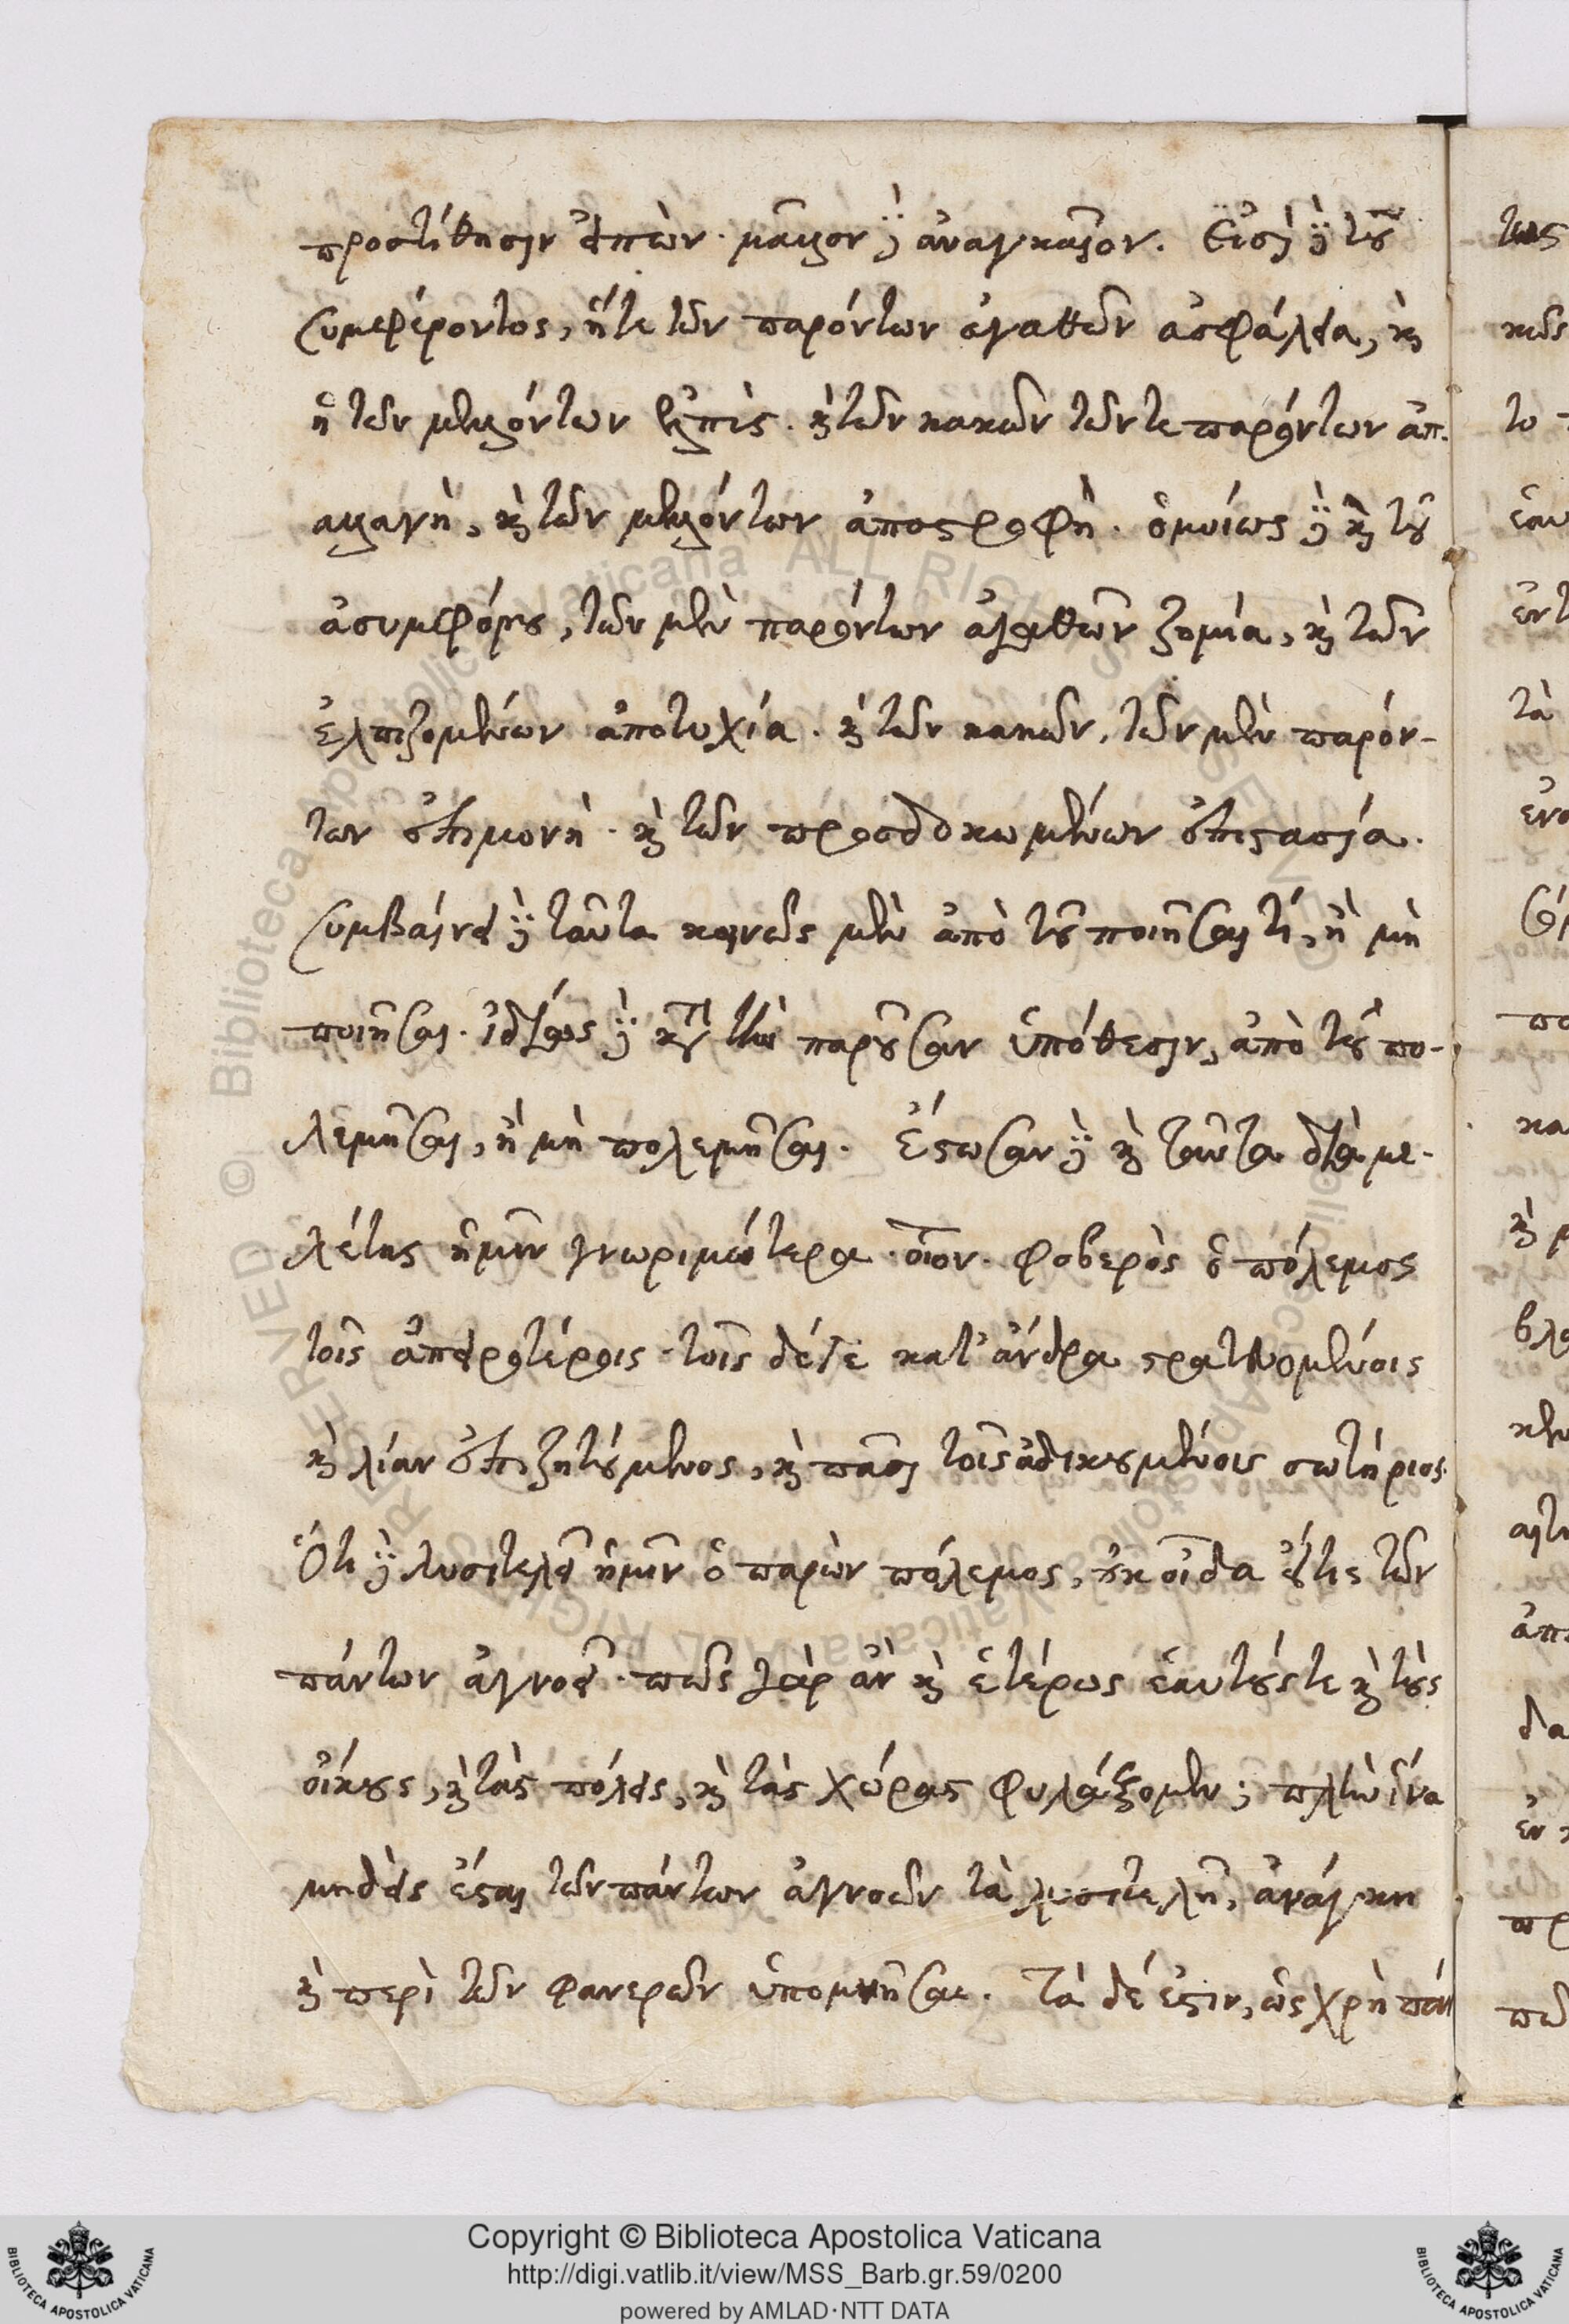 προστίθησιν εἰπὼν· μᾶλλον δὲ ἀναγκαῖον. Εἰσὶ δὲ τοῦ
συμφέροντος, ἥτε τῶν παρόντων ἀγαθῶν ἀσφάλεια, καὶ
ἡ τῶν μελλόντων ἐλπὶς. καὶ τῶν κακῶν τῶν τε παρόντων ἀπ-
αλλαγὴ, καὶ τῶν μελλόντων ἀποστροφὴ. ὁμοίως δὲ καὶ τοῦ
ἀσυμφόρου, τῶν μὲν παρόντων ἀγαθῶν ζημία, καὶ τῶν
ἐλπιζομένων ἀποτυχία. καὶ τῶν κακῶν, τῶν μὲν παρόν-
των ἐπιμονὴ. καὶ τῶν προσδοκωμένων ἐπιστασία.
Συμβαίνει δὲ ταῦτα κοινῶς μὲν ἀπὸ τοῦ ποιῆσαι τί, ἢ μὴ
ποιῆσαι. ἰδίως δὲ κατὰ τὴν παροῦσαν ὑπόθεσιν, ἀπὸ τοῦ πο-
λεμῆσαι, ἢ μὴ πολεμῆσαι. Ἔστωσαν δὲ καὶ ταῦτα διὰ με-
λέτης ἡμῖν γνωριμώτερα. οἷον. φοβερὸς ὁ πόλεμος
τοῖς ἀπειροτέροις. τοῖς δέ γε κατ' ἄνδρα στρατευομένοις
καὶ λίαν ἐπιζητούμενος, καὶ πᾶσι τοῖς ἀδικουμένοις σωτήριος.
Ὅτι δὲ λυσιτελεῖ ἡμῖν ὁ παρὼν πόλεμος, οὐκ οἶδα εἴ τις τῶν
πάντων ἀγνοεῖ. πῶς γὰρ ἂν καὶ ἑτέρως ἑαυτούς τε καὶ τοὺς
οἴκους, καὶ τὰς πόλεις, καὶ τὰς χώρας φυλάξομεν; πλὴν ἵνα
μηδεὶς ἔσται τῶν πάντων ἀγνοῶν τὰ λυσιτελῆ, ἀνάγκη
καὶ περὶ τῶν φανερῶν ὑπομνῆσαι. Τὰ δέ ἐστιν, ὡς χρὴ πάν
Copyright © Biblioteca Apostolica Vaticana
http://digi.vatlib.it/view/MSS_Barb.gr.59/0200
powered by AMLAD·NTT DATA